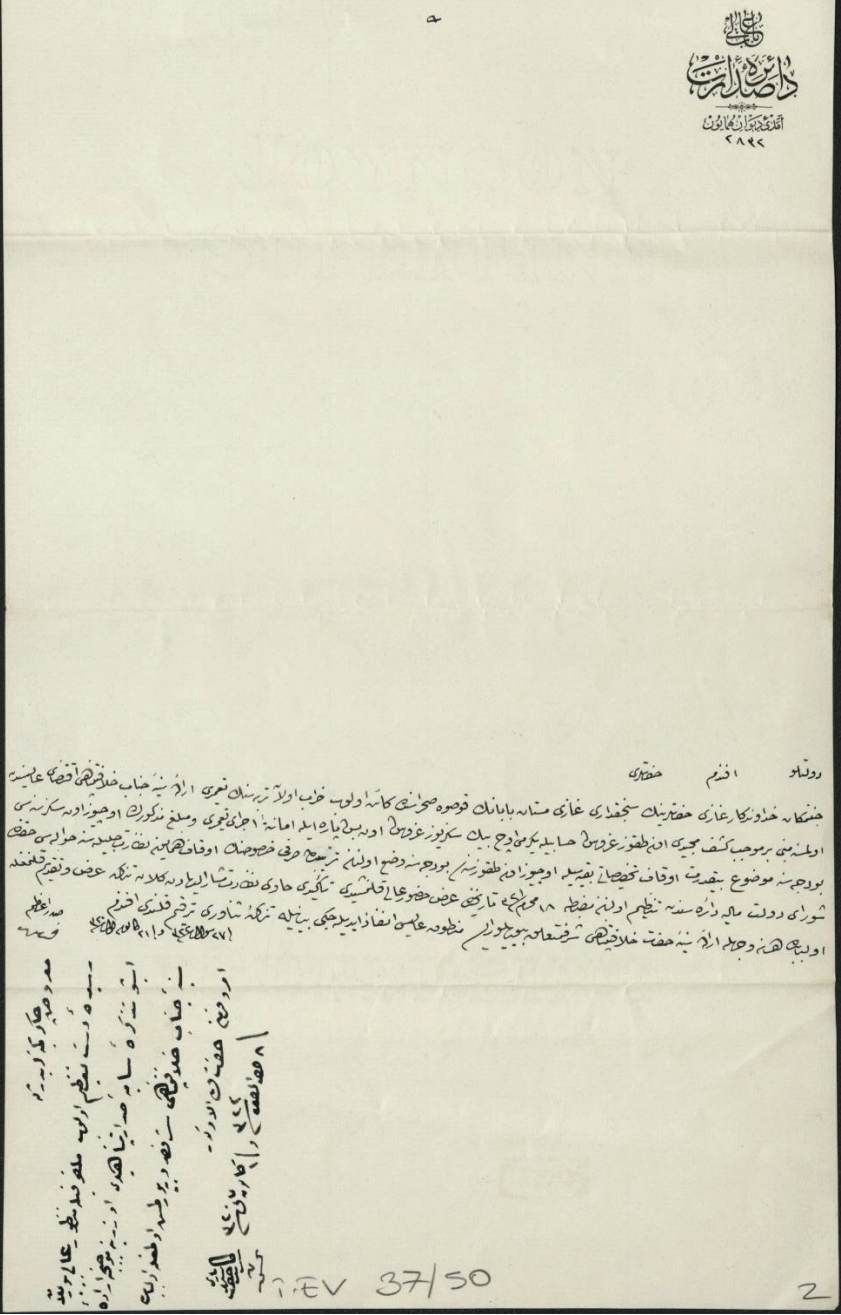 باب عالی
دائرهٔ صدارت
آمدئ دیوان همایون
٢٨٣٢
دولتلو افندم حضرتلری
جنتمکان خداوندکار غازی حضرتلرینك سنجقداری غازی مستان بابانك قوصوه صحراسنده کائن اولوب خراب اولان تربه‌سنك تعمیری ارادهٔ سنیهٔ جناب خلافتپناهی اقتضای عالیسندن
اولمسنه مبنی بر موجب کشف مجیدی اون طقوز غروش حسابیله یکرمی اوچ بیك سکزیوز غروش اون بش پاره ایله امانةً اجرای تعمیری و مبلغ مذکورك اوچیوز اون سکز سنه‌سی
بودجه‌سنه موضوع تخصیصاتی اوچیوز اون طقوز سنه‌سی بودجه‌سنه وضع اولنه‌رق صرفی خصوصنك اوقاف همایون نظارت جلیله‌سنه حواله‌سی حقنده
شورای دولت مالیه دائره‌سندن تنظیم اولنان مضبطه ١٨ محرم تاریخنده عرض حضور عالی قلنمشیدی تأکیدی حاوی نظارت مشار الیهادن کلان تذکره عرض و تقدیم قلنمغله
اولبابده هر نه وجهله ارادهٔ سنیهٔ حضرت خلافتپناهی شرفمتعلق بیوریلورسه منطوق عالیسی انفاذ ایدیله‌جکی بیانیله تذکرهٔ ثناوری ترقیم قلندی افندم
صدر اعظم
فرید
معروض چاکر کمینه‌لریدر
رسیدهٔ دست تعظیم اولوب ملفوفیله منظور عالی بیوریلان
اشبو تذکرهٔ سامیهٔ صدارتپناهیلری اوزرینه موجبنجه ارادهٔ
سنیهٔ جناب خلافتپناهی شرفصدور بیورلمش اولمغله اولبابده
امر و فرمان حضرت ولی الامرکدر
T.EV 37/50
2